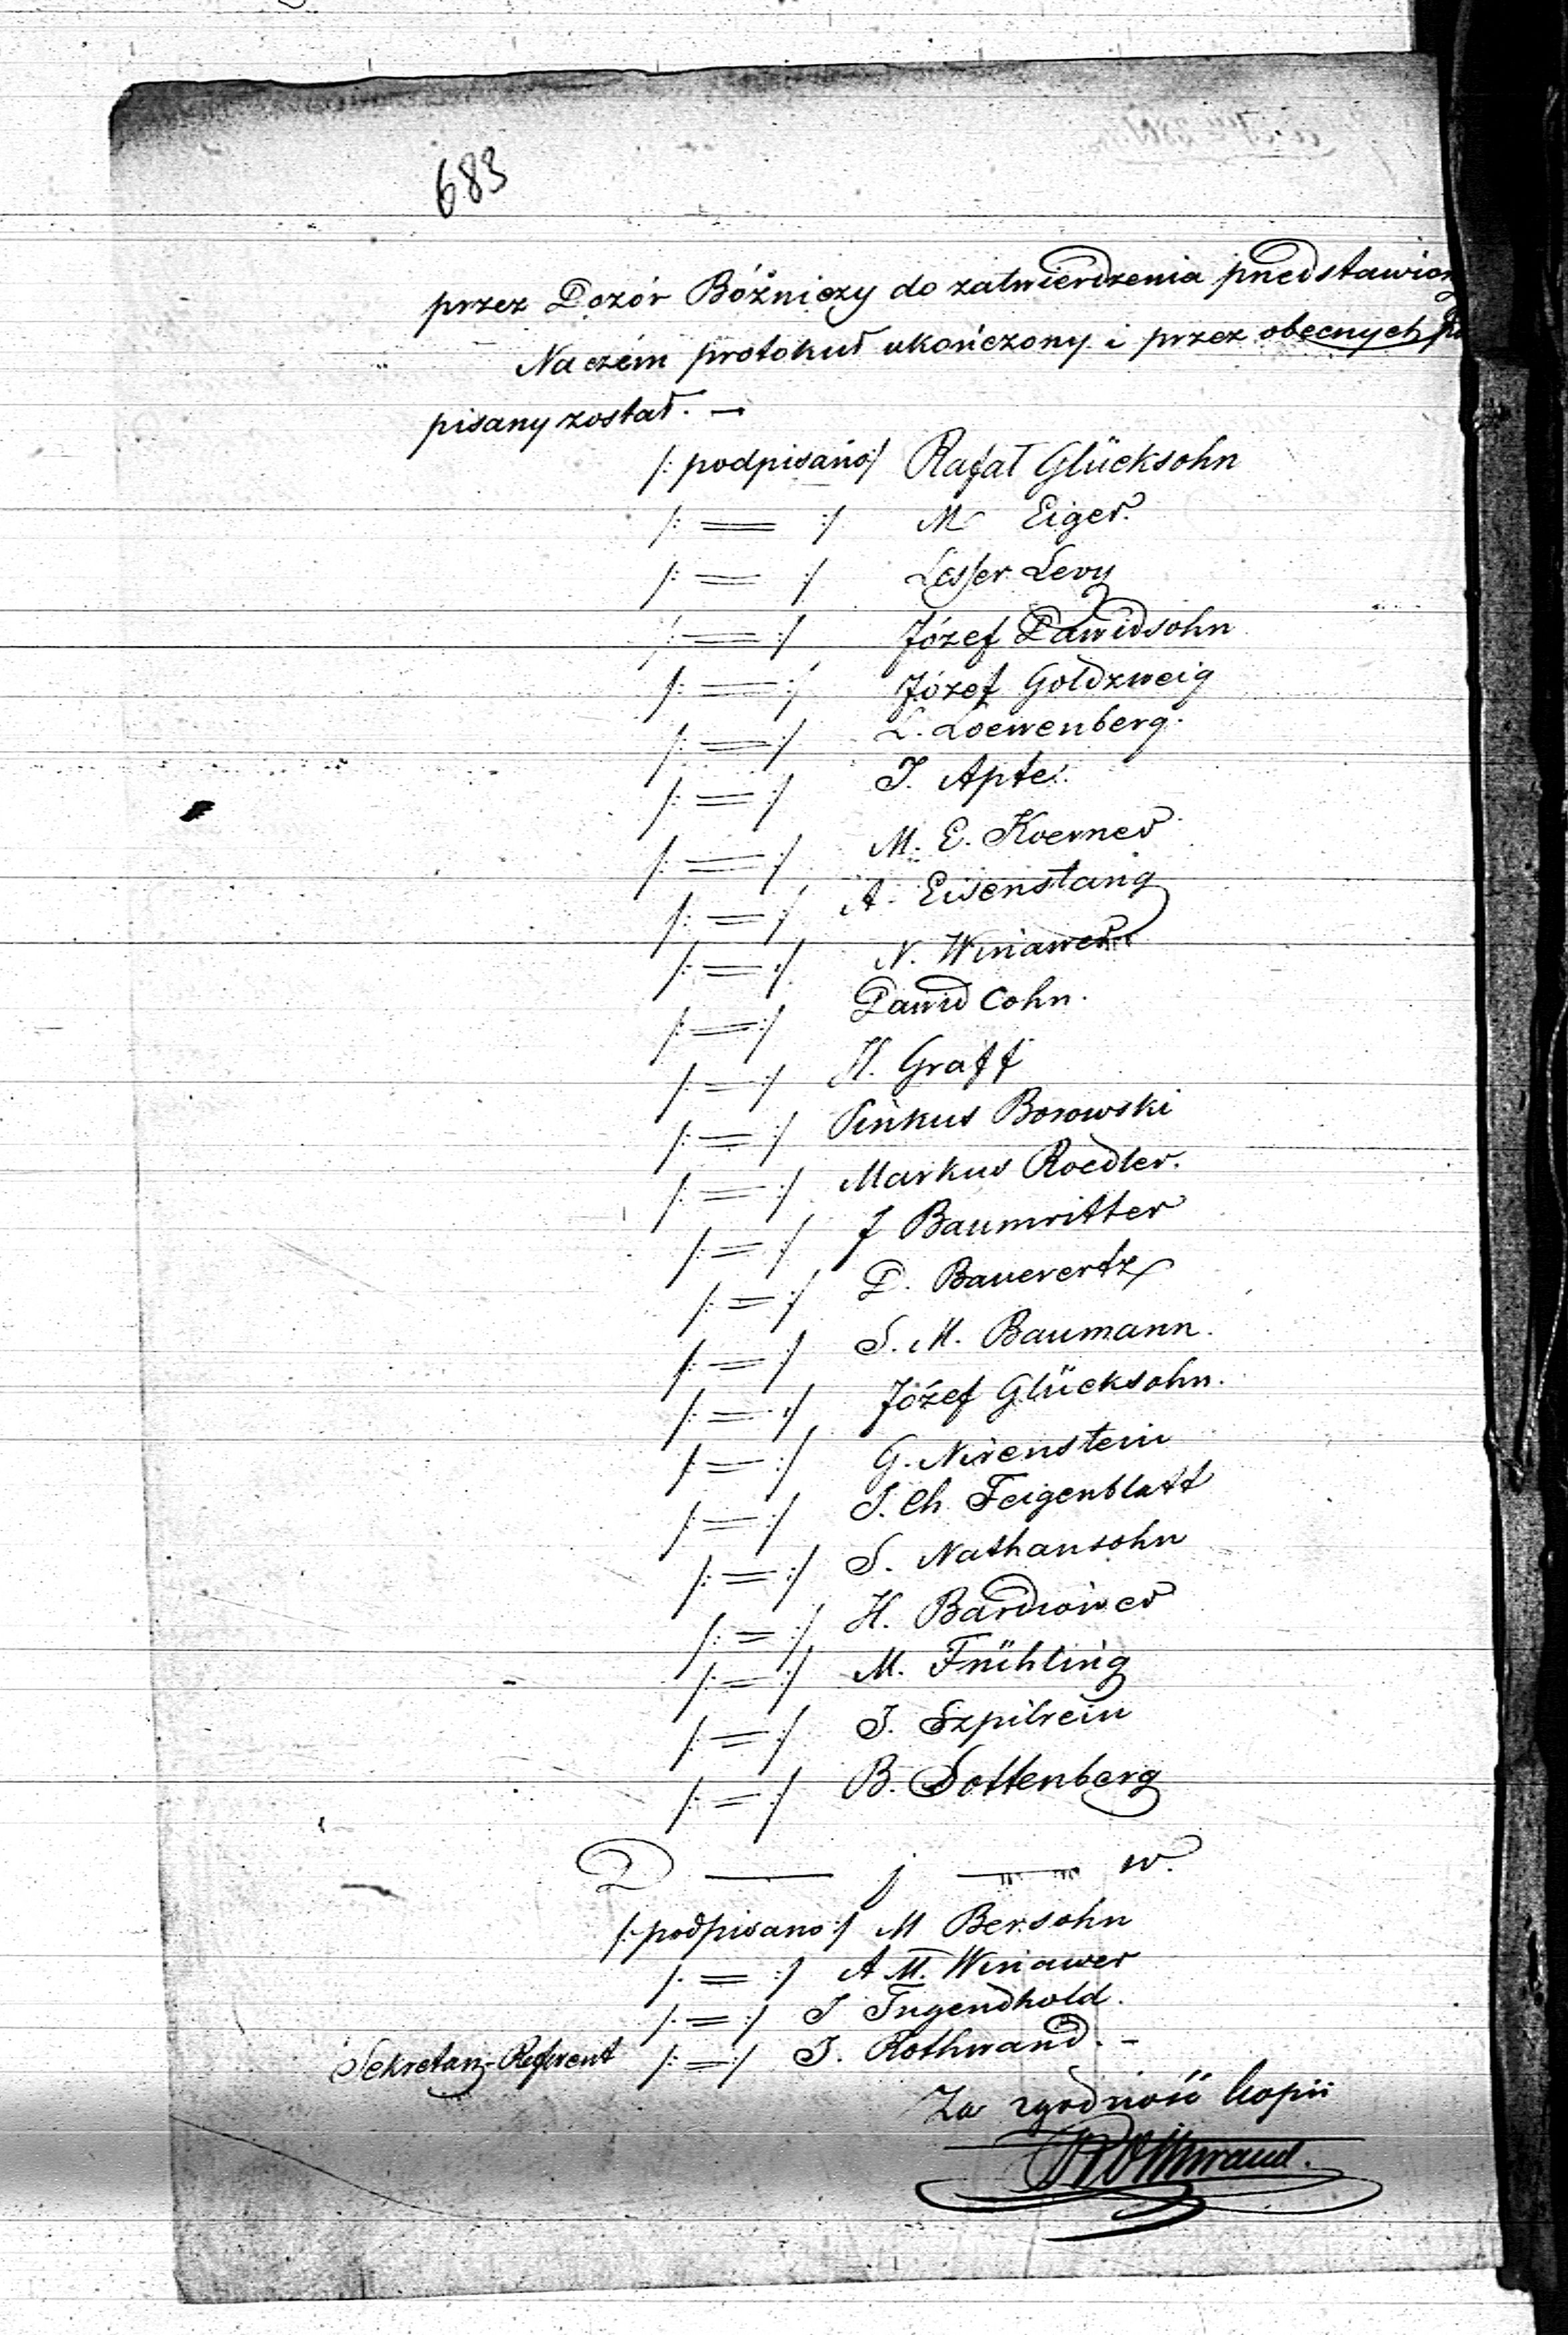 683
przez Dozór Bóżniczy do zatwierdzenia przedstawion
Na czém protokuł ukończony i przez obecnych po
pisany został. —
/: podpisano :/ Rafał Glücksohn
/: = :/ M Eiger.
/: = :/ Lesser Levy
/: = :/ Józef Dawidsohn
/: = :/ Józef Goldzweig
/: = :/ L. Loewenberg.
/: = :/ J. Apte.
/: = :/ M. E. Koerner
/: = :/ A. Eisenstang
/: = :/ N. Winawer
/: = :/ Dawid Cohn.
/: = :/ H. Graff
/: = :/ Pinkus Borowski
/: = :/ Markus Roedler.
/: = :/ J Baumritter
/: = :/ D. Bauerertz
/: = :/ S. M. Baumann.
/: = :/ Józef Glücksohn.
/: = :/ G. Nirenstein
/: = :/ J. Ch Feigenblatt
/: = :/ S. Nathansohn
/: = :/ H. Bardower
/: = :/ M. Frühling
/: = :/ J. Szpilrein
/: = :/ B. Sottenberg
D — j — w.
/: podpisano :/ M Bersohn
/: = :/ A M. Winawer
/: = :/ J Tugendhold.
Sekretarz-Referent /: = :/ J. Rothwand. -
Za zgodność kopii
Rothwand.